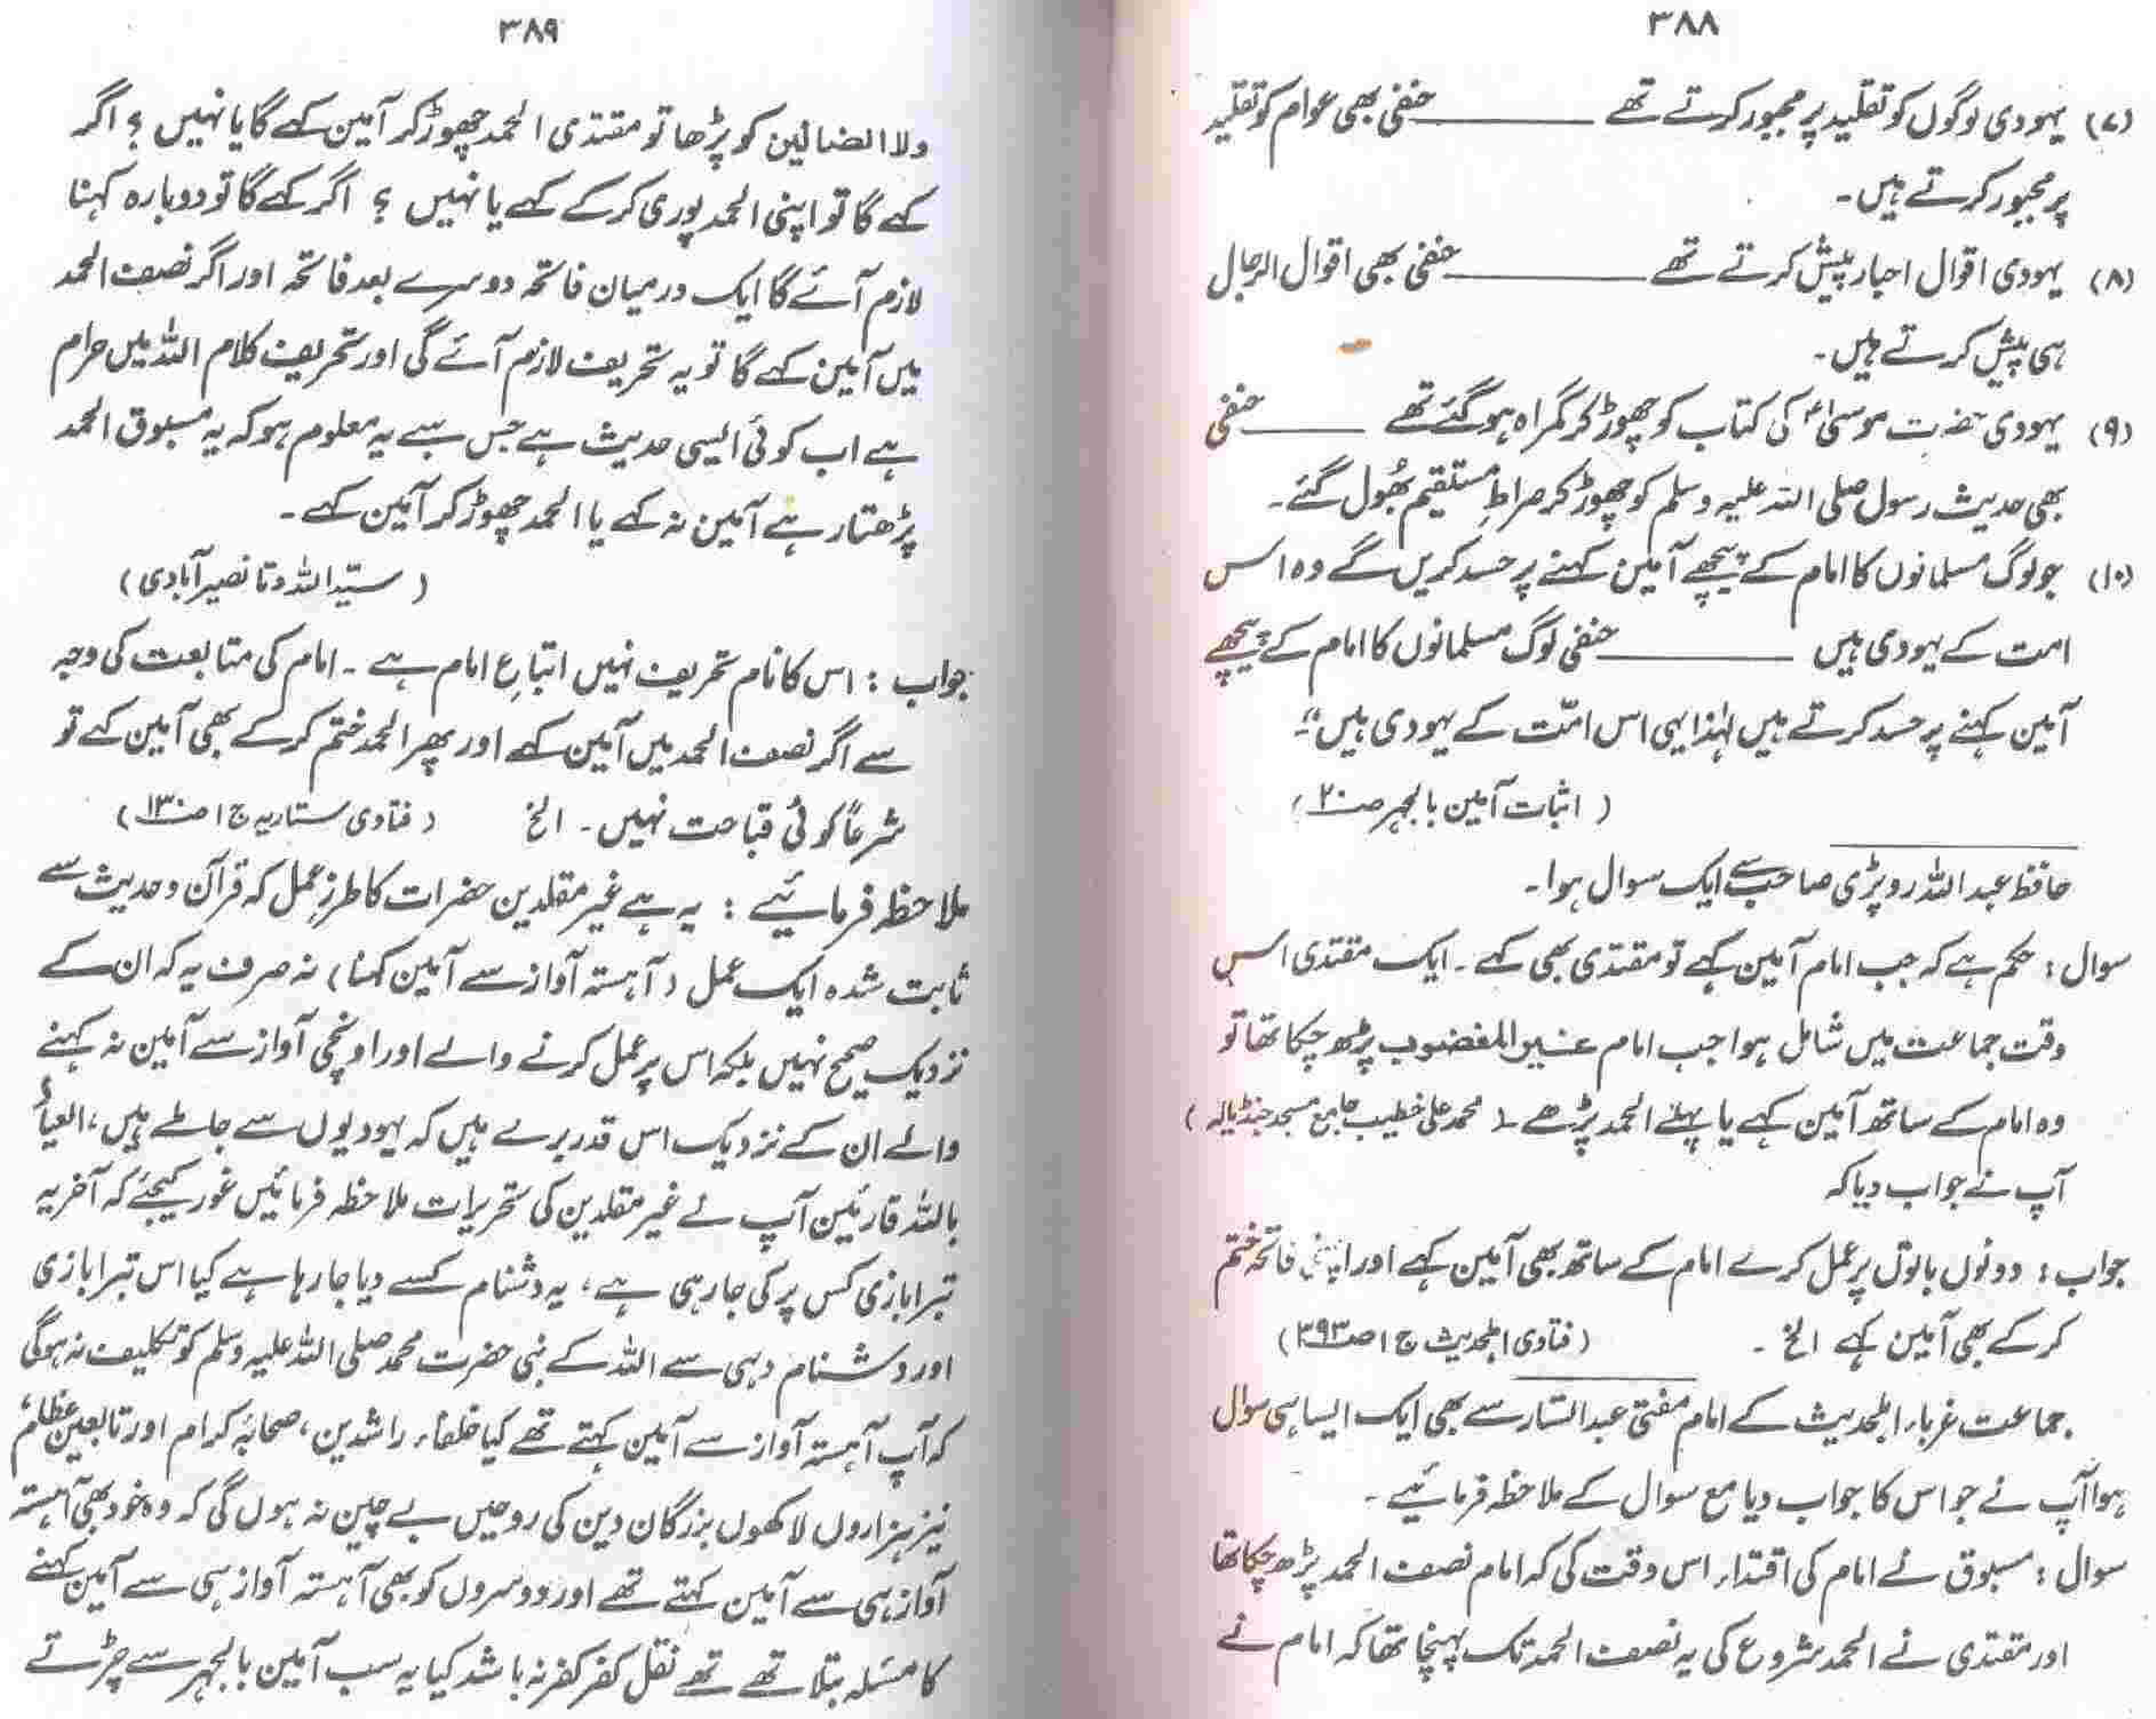 ۳۸۸
(۷) یہودی لوگوں کو تقلید پر مجبور کرتے تھے ــــــــ حنفی بھی عوام کو تقلید
پر مجبور کرتے ہیں۔
(۸) یہودی اقوال احبار پیش کرتے تھے ــــــــ حنفی بھی اقوال الرجال
ہی پیش کرتے ہیں۔
(۹) یہودی حضرت موسیٰؑ کی کتاب کو چھوڑ کر گمراہ ہو گئے تھے ــــــــ حنفی
بھی حدیث رسول صلی اللہ علیہ وسلم کو چھوڑ کر صراطِ مستقیم بُھول گئے۔
(۱۰) جو لوگ مسلمانوں کا امام کے پیچھے آمین کہنے پر حسد کریں گے وہ اس
امت کے یہودی ہیں ــــــــ حنفی لوگ مسلمانوں کا امام کے پیچھے
آمین کہنے پر حسد کرتے ہیں لہٰذا یہی اس امّت کے یہودی ہیں"۔
(اثبات آمین بالجہر صـ۲۰)
حافظ عبداللہ روپڑی صاحب سے ایک سوال ہوا۔
سوال : حکم ہے کہ جب امام آمین کہے تو مقتدی بھی کہے۔ ایک مقتدی اس
وقت جماعت میں شامل ہوا جب امام غیر المغضوب پڑھ چکا تھا تو
وہ امام کے ساتھ آمین کہے یا پہلے الحمد پڑھے۔ (محمد علی خطیب جامع مسجد جنڈیالہ)
آپ نے جواب دیا کہ
جواب : دونوں باتوں پر عمل کرے امام کے ساتھ بھی آمین کہے اور اپنی فاتحہ ختم
کر کے بھی آمین کہے الخ۔ (فتاوی اہلحدیث ج۱ صـ۳۹۳)
جماعت غرباء اہلحدیث کے امام مفتی عبدالستار سے بھی ایک ایسا ہی سوال
ہوا آپ نے جو اس کا جواب دیا مع سوال کے ملاحظہ فرمائیے۔
سوال : مسبوق نے امام کی اقتداء اس وقت کی کہ امام نصف الحمد پڑھ چکا تھا
اور مقتدی نے الحمد شروع کی یہ نصف الحمد تک پہنچا تھا کہ امام نے
۳۸۹
ولا الضالین کو پڑھا تو مقتدی الحمد چھوڑ کر آمین کہے گا یا نہیں ؟ اگر
کہے گا تو اپنی الحمد پوری کر کے کہے یا نہیں ؟ اگر کہے گا تو دوبارہ کہنا
لازم آئے گا ایک درمیان فاتحہ دوسرے بعد فاتحہ اور اگر نصف الحمد
میں آمین کہے گا تو یہ تحریف لازم آئے گی اور تحریف کلام اللہ میں حرام
ہے اب کوئی ایسی حدیث ہے جس سے یہ معلوم ہو کہ یہ مسبوق الحمد
پڑھتا رہے آمین نہ کہے یا الحمد چھوڑ کر آمین کہے۔
(سیّد اللہ دتا نصیر آبادی)
جواب : اس کا نام تحریف نہیں اتباعِ امام ہے۔ امام کی متابعت کی وجہ
سے اگر نصف الحمد میں آمین کہے اور پھر الحمد ختم کر کے بھی آمین کہے تو
شرعاً کوئی قباحت نہیں۔ الخ (فتاوی ستاریہ ج۱ صـ۱۳۰)
ملاحظہ فرمائیے : یہ ہے غیر مقلدین حضرات کا طرز عمل کہ قرآن و حدیث سے
ثابت شدہ ایک عمل (آہستہ آواز سے آمین کہنا) نہ صرف یہ کہ ان کے
نزدیک صحیح نہیں بلکہ اس پر عمل کرنے والے اور اونچی آواز سے آمین نہ کہنے
والے ان کے نزدیک اس قدر برے ہیں کہ یہودیوں سے جا ملے ہیں، العیاذ
باللہ قارئین آپ نے غیر مقلدین کی تحریرات ملاحظہ فرمائیں غور کیجئے کہ آخر یہ
تبرا بازی کس پر کی جا رہی ہے، یہ دشنام کسے دیا جا رہا ہے کیا اس تبرا بازی
اور دشنام دہی سے اللہ کے نبی حضرت محمد صلی اللہ علیہ وسلم کو تکلیف نہ ہوگی
کہ آپ آہستہ آواز سے آمین کہتے تھے کیا خلفاء راشدین، صحابہ کرام اور تابعین عظام
نیز ہزاروں لاکھوں بزرگان دین کی روحیں بے چین نہ ہوں گی کہ وہ خود بھی آہستہ
آواز ہی سے آمین کہتے تھے اور دوسروں کو بھی آہستہ آواز ہی سے آمین کہنے
کا مسئلہ بتلاتے تھے نقل کفر کفر نہ باشد کیا یہ سب آمین بالجہر سے چڑتے